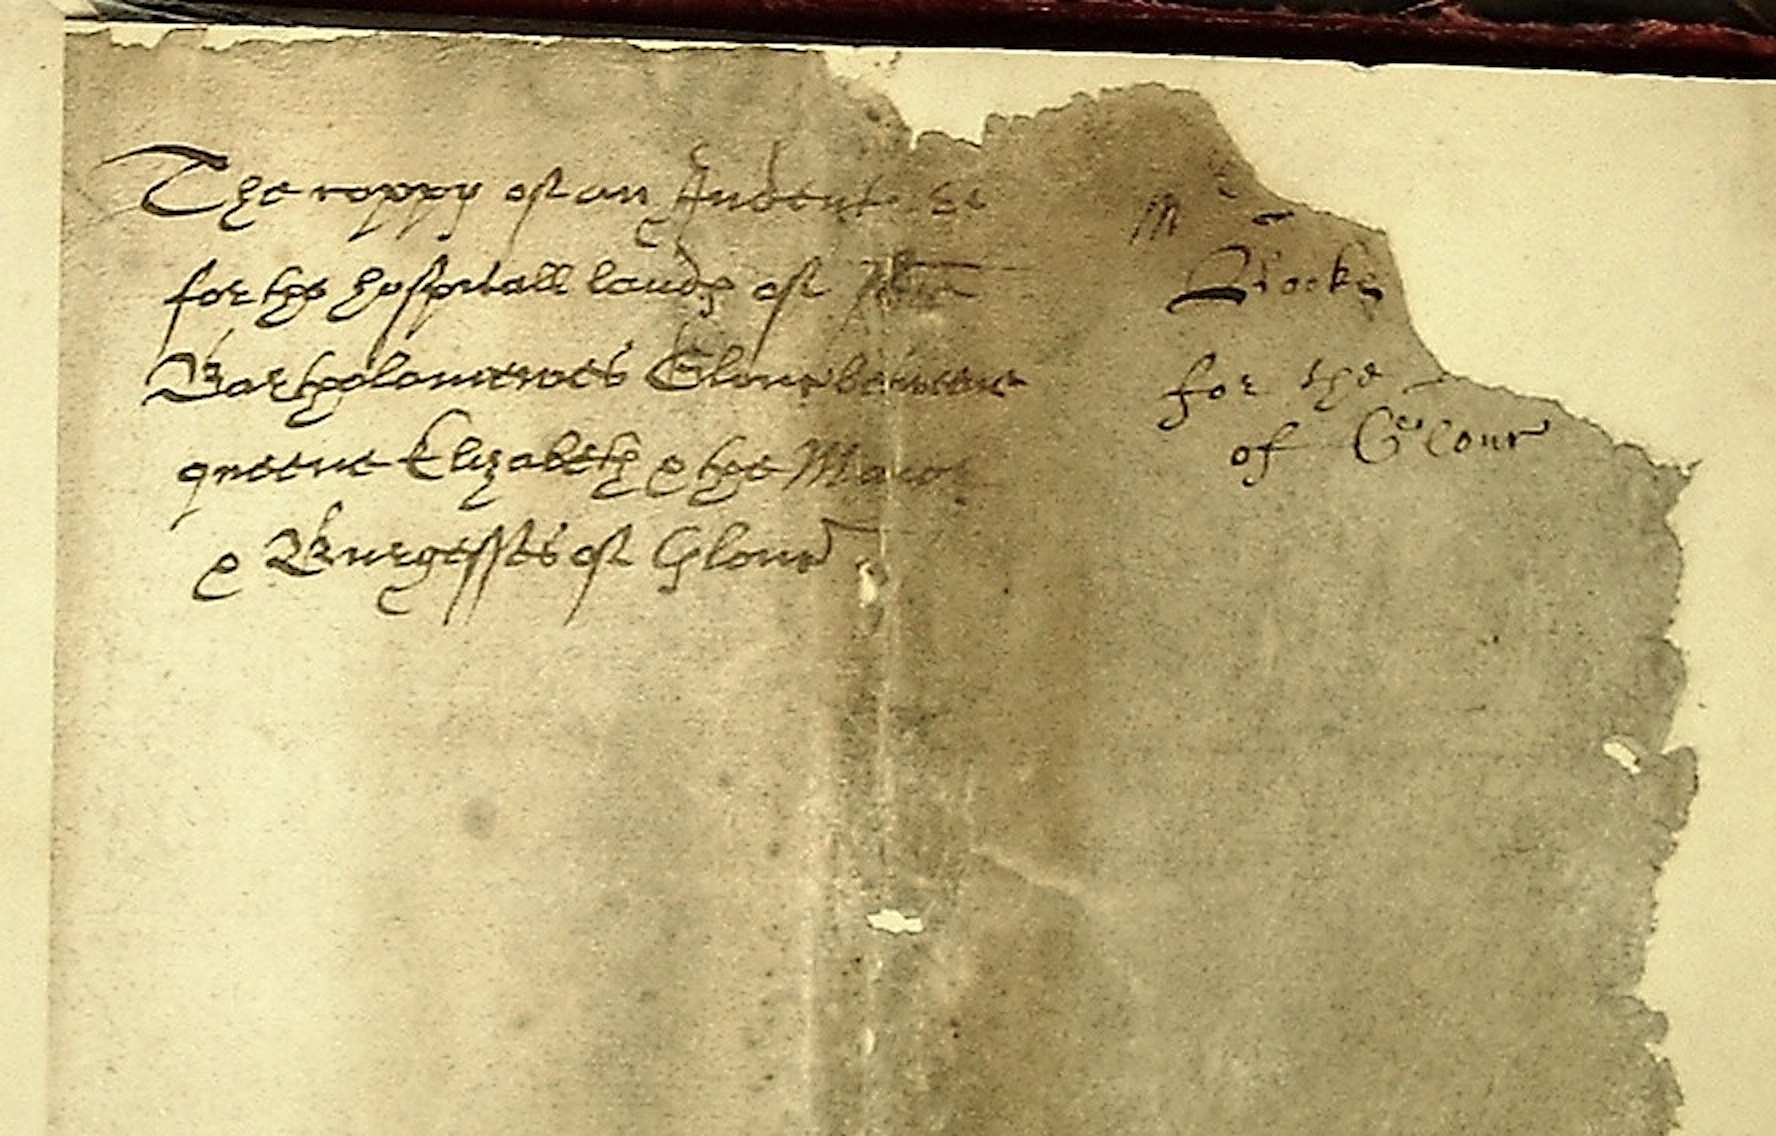 The coppy of an Indenture
for the hospitall lands of
Bartholomewes Glouc betweene
queene Elizabeth & the Maior
& Burgesses of Glouc
M
Brooke
for the
of Glouc